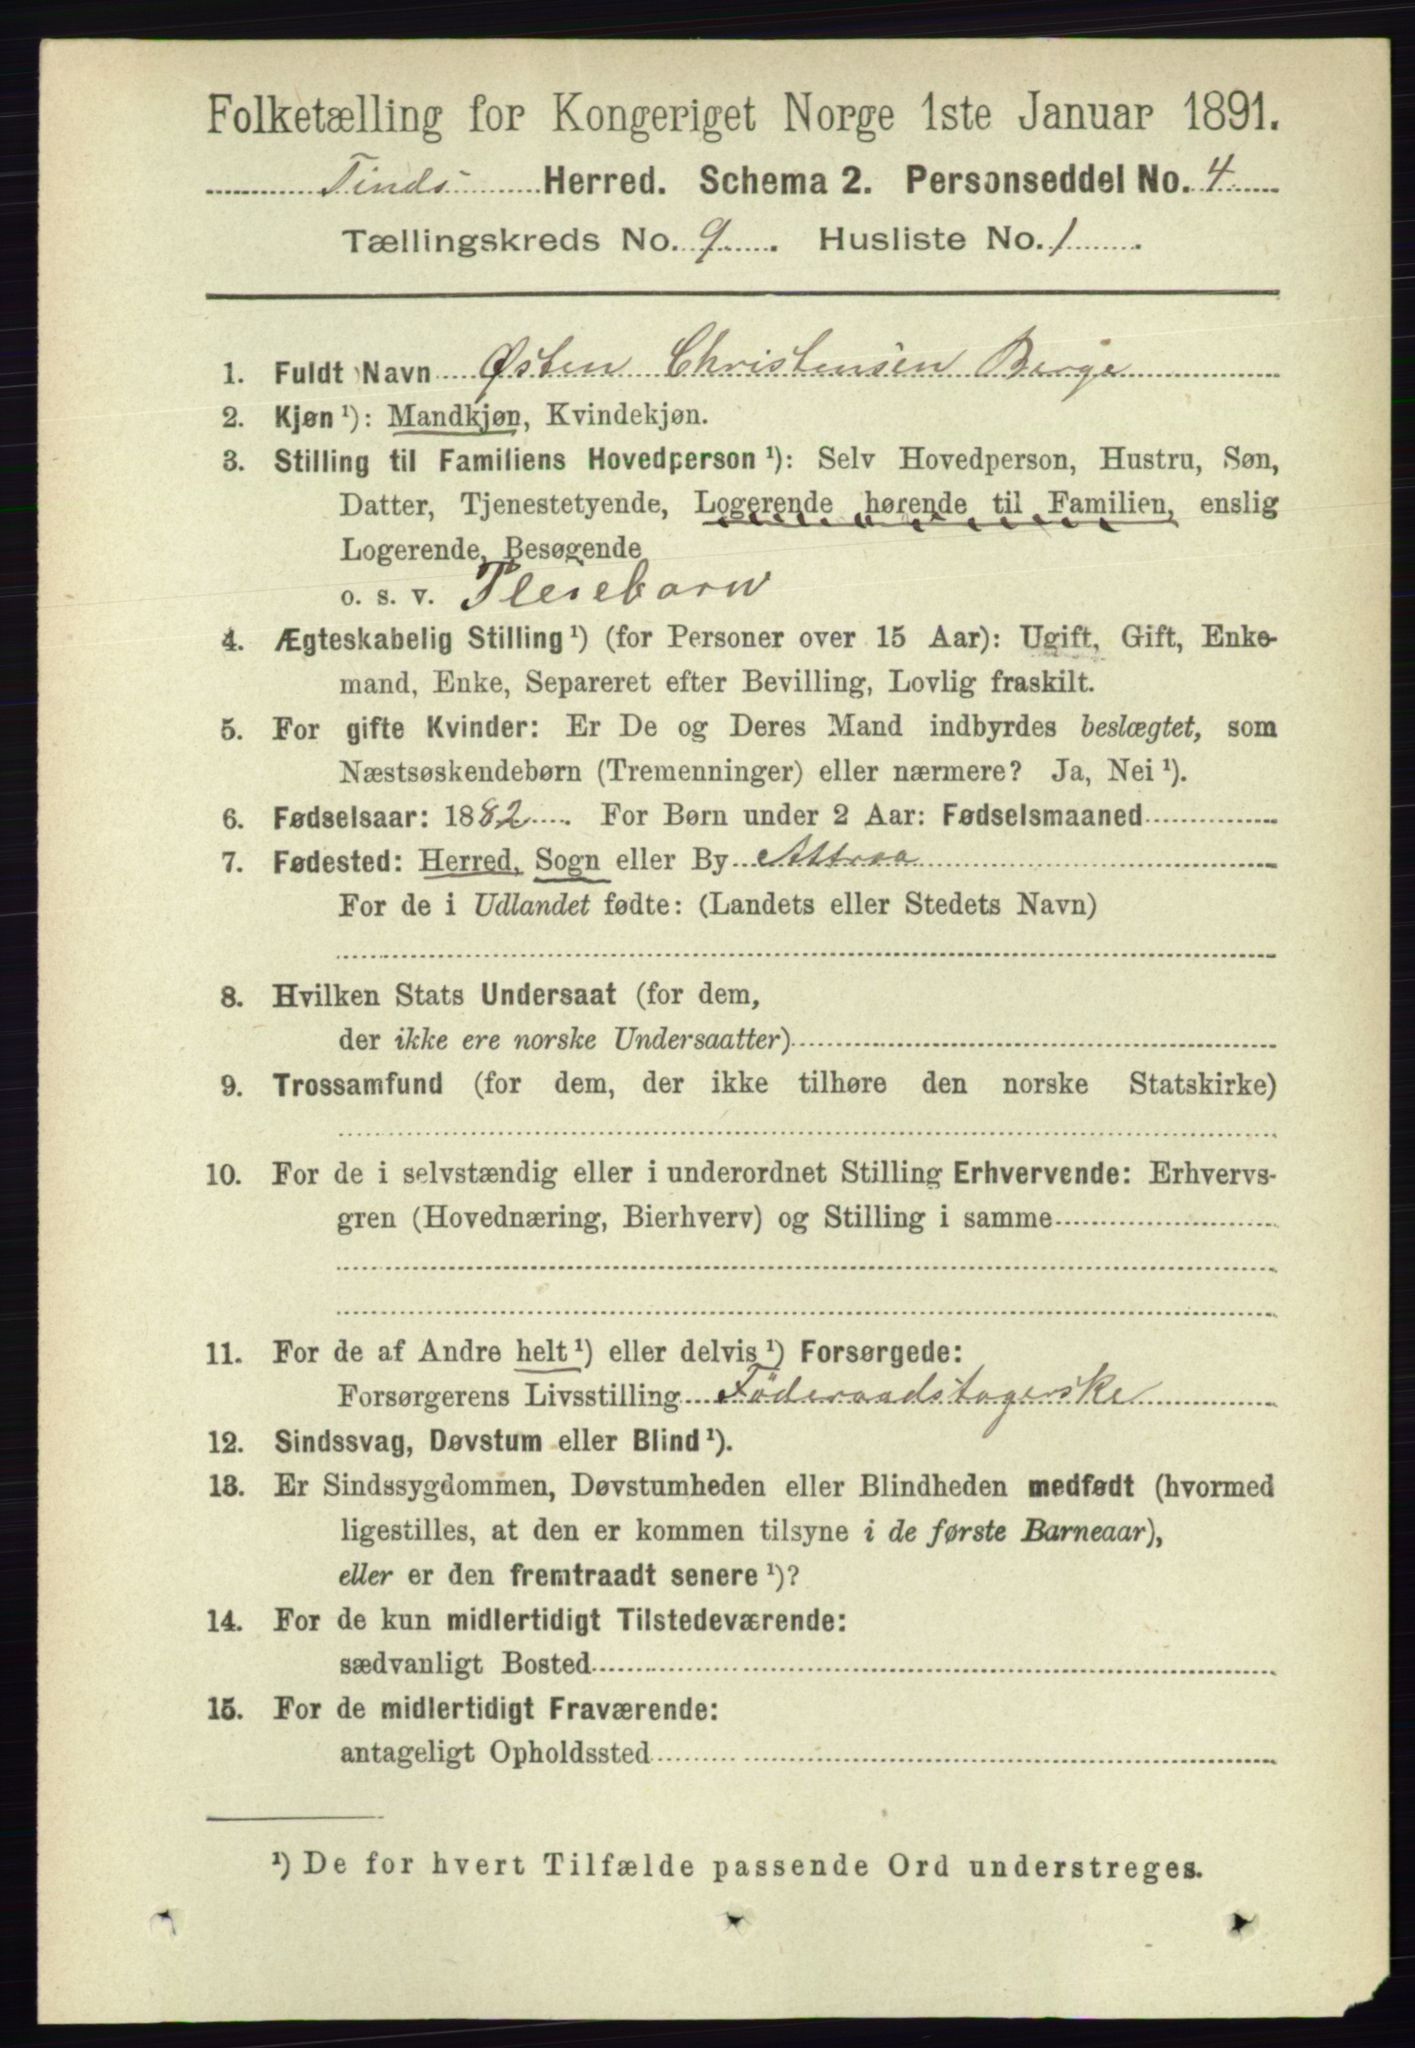 Folketælling for Kongeriget Norge 1ste Januar 1891.
Tinds Herred. Schema 2. Personseddel No. 4
Tællingskreds No. 9. Husliste No. 1.
1. Fuldt Navn Østen Christensen Berge
2. Kjøn ¹): Mandkjøn, Kvindekjøn.
3. Stilling til Familiens Hovedperson ¹): Selv Hovedperson, Hustru, Søn,
Datter, Tjenestetyende, Logerende hørende til Familien, enslig
Logerende, Besøgende
o. s. v. Pleiebarn
4. Ægteskabelig Stilling ¹) (for Personer over 15 Aar): Ugift, Gift, Enke-
mand, Enke, Separeret efter Bevilling, Lovlig fraskilt.
5. For gifte Kvinder: Er De og Deres Mand indbyrdes beslægtet, som
Næstsøskendebørn (Tremenninger) eller nærmere? Ja, Nei ¹).
6. Fødselsaar: 1882. For Børn under 2 Aar: Fødselsmaaned
7. Fødested: Herred, Sogn eller By Attraa
For de i Udlandet fødte: (Landets eller Stedets Navn)
8. Hvilken Stats Undersaat (for dem,
der ikke ere norske Undersaatter)
9. Trossamfund (for dem, der ikke tilhøre den norske Statskirke)
10. For de i selvstændig eller i underordnet Stilling Erhvervende: Erhvervs-
gren (Hovednæring, Bierhverv) og Stilling i samme
11. For de af Andre helt ¹) eller delvis ¹) Forsørgede:
Forsørgerens Livsstilling Föderaadstagerske
12. Sindssvag, Døvstum eller Blind ¹).
13. Er Sindssygdommen, Døvstumheden eller Blindheden medfødt (hvormed
ligestilles, at den er kommen tilsyne i de første Barneaar),
eller er den fremtraadt senere ¹)?
14. For de kun midlertidigt Tilstedeværende:
sædvanligt Bosted
15. For de midlertidigt Fraværende:
antageligt Opholdssted
¹) De for hvert Tilfælde passende Ord understreges.